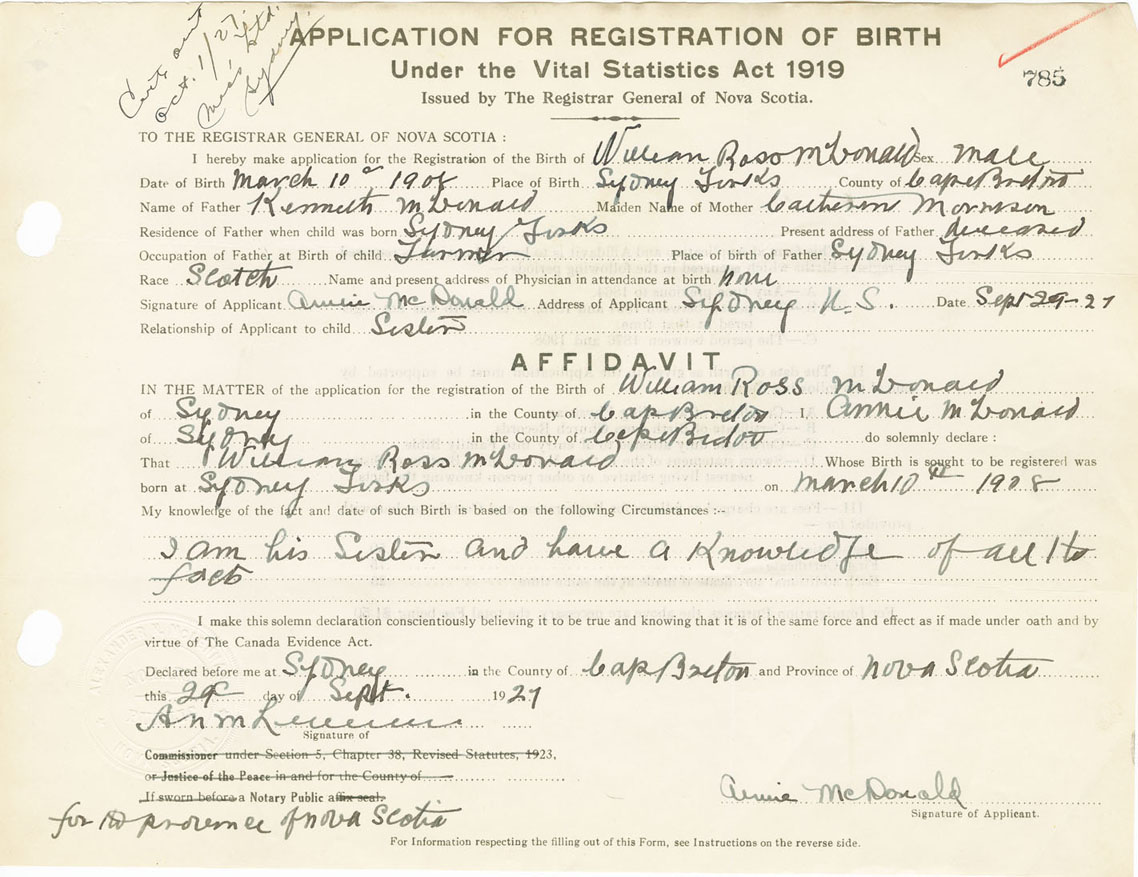 Cert. out
Oct. 1/27.
Sydney.
APPLICATION FOR REGISTRATION OF BIRTH
Under the Vital Statistics Act 1919
785
Issued by The Registrar General of Nova Scotia.
TO THE REGISTRAR GENERAL OF NOVA SCOTIA :
I hereby make application for the Registration of the Birth of William Ross McDonald Sex male
Date of Birth March 10th 1908 Place of Birth Sydney Forks County of Cape Breton
Name of Father Kenneth McDonald Maiden Name of Mother Catherine Morrison
Residence of Father when child was born Sydney Forks Present address of Father deceased
Occupation of Father at Birth of child Farmer Place of birth of Father Sydney Forks
Race Scotch Name and present address of Physician in attendance at birth none
Signature of Applicant Annie McDonald Address of Applicant Sydney N.S. Date Sept 29-27
Relationship of Applicant to child Sister
AFFIDAVIT
IN THE MATTER of the application for the registration of the Birth of William Ross McDonald
of Sydney in the County of Cape Breton I, Annie McDonald
of Sydney in the County of Cape Breton do solemnly declare :
That William Ross McDonald Whose Birth is sought to be registered was
born at Sydney Forks on March 10th 1908
My knowledge of the fact and date of such Birth is based on the following Circumstances :--
I am his Sister and have a Knowledge of all the
facts
I make this solemn declaration conscientiously believing it to be true and knowing that it is of the same force and effect as if made under oath and by
virtue of The Canada Evidence Act.
Declared before me at Sydney in the County of Cape Breton and Province of Nova Scotia
this 29 day of Sept. 1927
Signature of
Commissioner under Section 5, Chapter 38, Revised Statutes, 1923,
or Justice of the Peace in and for the County of
If sworn before a Notary Public affix seal.
for the province of Nova Scotia
Annie McDonald
Signature of Applicant.
For Information respecting the filling out of this Form, see Instructions on the reverse side.